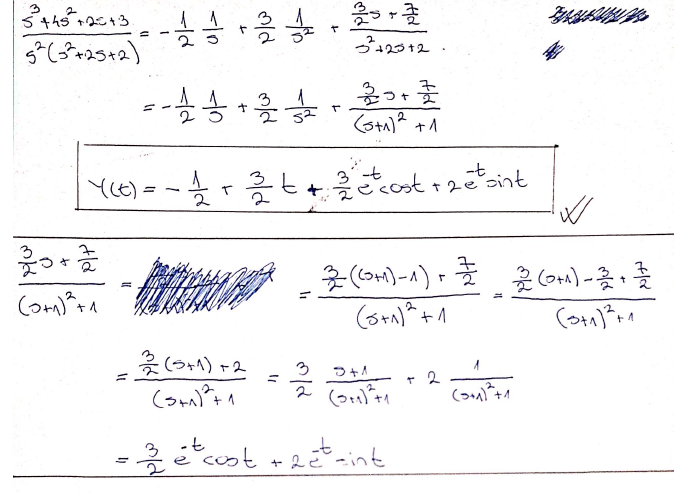 (s³+4s²+2s+3)/(s²(s²+2s+2)) = -1/2 1/s + 3/2 1/s² + (3/2 s + 7/2)/(s²+2s+2) .
= -1/2 1/s + 3/2 1/s² + (3/2 s + 7/2)/((s+1)²+1)
Y(t) = -1/2 + 3/2 t + 3/2 e^-t cost + 2e^-t sint
(3/2 s + 7/2)/((s+1)²+1) = = (3/2 (s+1)-1) + 7/2)/((s+1)²+1) = (3/2 (s+1) - 3/2 + 7/2)/((s+1)²+1)
= (3/2 (s+1) + 2)/((s+1)²+1) = 3/2 (s+1)/((s+1)²+1) + 2 1/((s+1)²+1)
= 3/2 e^-t cost + 2e^-t sint